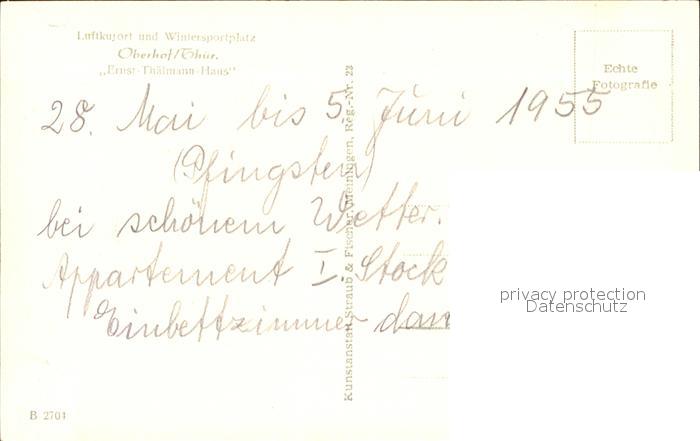 Luftkurort und Wintersportplatz
Oberhof/Thür.
„Ernst-Thälmann-Haus"
Echte
Fotografie
28. Mai bis 5. Juni 1955
(Pfingsten)
bei schönem Wetter.
Appartement I. Stock
Einbettzimmer
Kunstanstalt Straub & Fischer, Meiningen, Reg.-Nr. 23
privacy protection
Datenschutz
B 2701